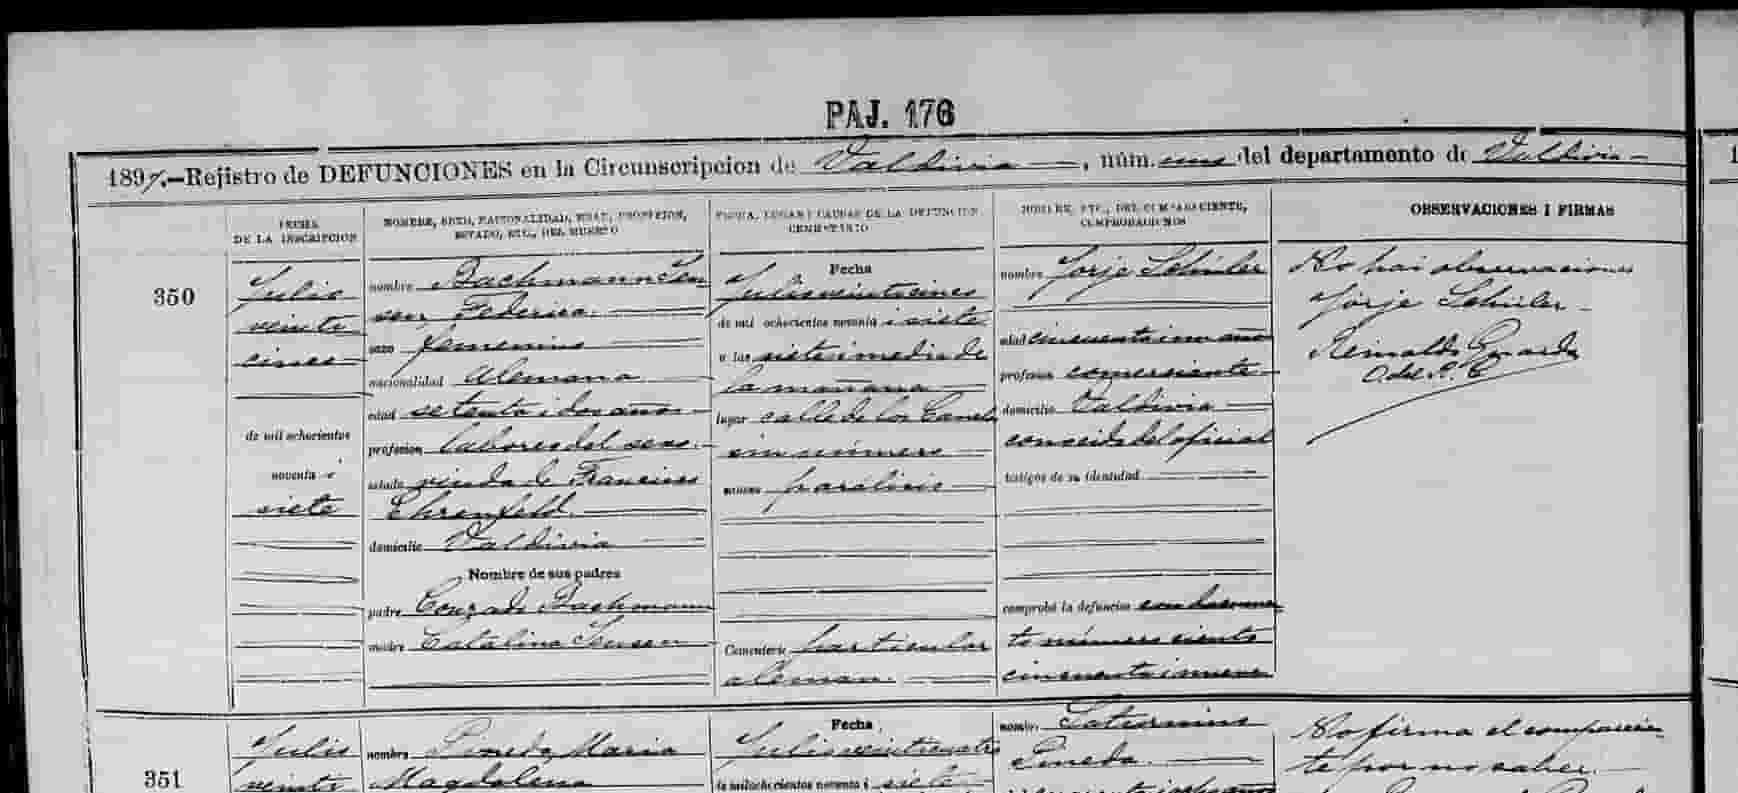 PAJ. 176
1897.—Rejistro de DEFUNCIONES en la Circunscripcion de Valdivia, núm. uno del departamento de Valdivia
FECHA
DE LA INSCRIPCION
NOMBRE, SEXO, NACIONALIDAD, EDAD, PROFESION,
ESTADO, ETC., DEL MUERTO
FECHA, LUGAR I CAUSAS DE LA DEFUNCION.
CEMENTERIO
NOMBRE, ETC., DEL COMPARECIENTE,
COMPROBACIONES
OBSERVACIONES I FIRMAS
350
Julio
veinte
cinco
de mil ochocientos
noventa i
siete
nombre Bachmann Jen
sen Federica.
sexo femenino
nacionalidad Alemana
edad setenta i dos años
profesion labores del sexo.
estado viuda de Francisco
Ehrenfeld.
domicilio Valdivia
Nombre de sus padres
padre Conrado Bachmann
madre Catalina Jensen
Fecha
Julio veinticinco
de mil ochocientos noventa i siete
a las siete i media de
la mañana
lugar calle de los Canelos
sin número
causa parálisis
Cementerio particular
aleman.
nombre Jorje Schüler
edad cincuenta i un años
profesion comerciante
domicilio Valdivia
conocido del oficial
testigos de su identidad
comprobó la defuncion con documen
to número ciento
cincuenta i nueve
No hai observaciones
Jorje Schüler
Reinaldo
O. del R. C.
351
Julio
veinte
nombre Pineda Maria
Magdalena
Fecha
Julio veinticuatro
de mil ochocientos noventa i siete
nombre Saturnino
Pineda.
No firma el comparecien
te por no saber.